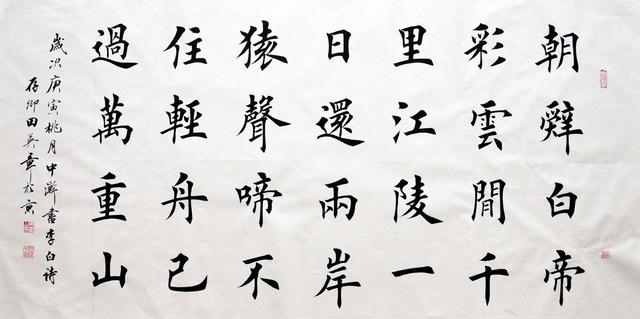 朝辭白帝
彩雲閒千
里江陵一
日還兩岸
猿聲啼不
住輕舟已
過萬重山
歲次庚寅桃月中澣書李白詩
存卿田英章於京